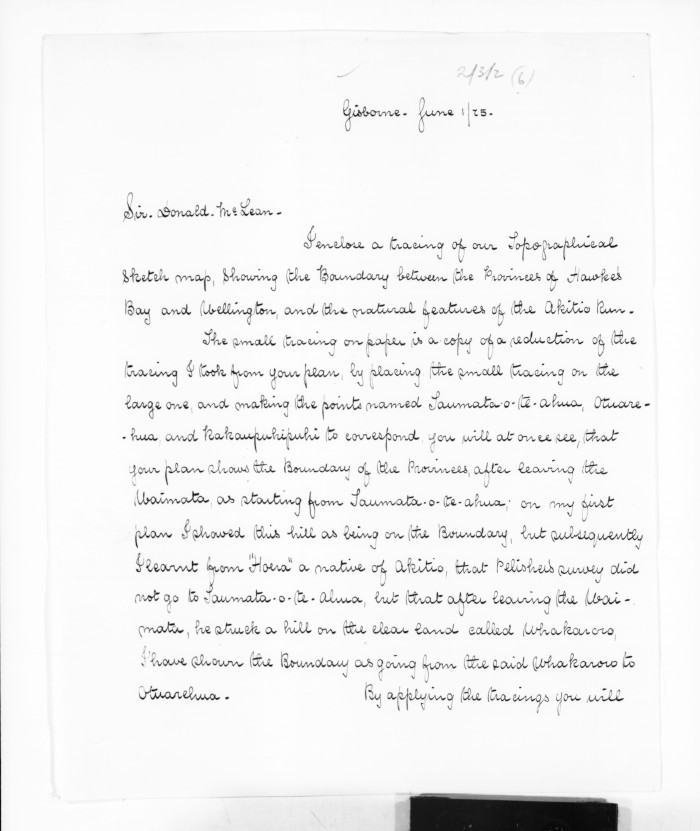 2/3/2 (6)
Gisborne. June 1/75.
Sir. Donald. McLean.
I enclose a tracing of our Topographical
Sketch map, Showing the Boundary between the Provinces of Hawke's
Bay and Wellington, and the natural features of the Akitio Run.
The small tracing on paper is a copy of a reduction of the
tracing I took from your plan, by placing the small tracing on the
large one, and making the points named Taumata-o-te-ahua, Otuare-
-hua, and Kakaupuhipuhi to correspond, you will at once see, that
your plan shows the Boundary of the Provinces, after leaving the
Waimata, as starting from Taumata-o-te-ahua; on my first
plan I showed this hill as being on the Boundary, but subsequently
I learnt from "Hoera" a native of Akitio, that Pelichet's survey did
not go to Taumata-o-te-Ahua, but that after leaving the Wai-
mata, he struck a hill on the clear land called Whakaroro,
I have shown the Boundary as going from the said Whakaroro to
Otuarehua. By applying the tracings you will